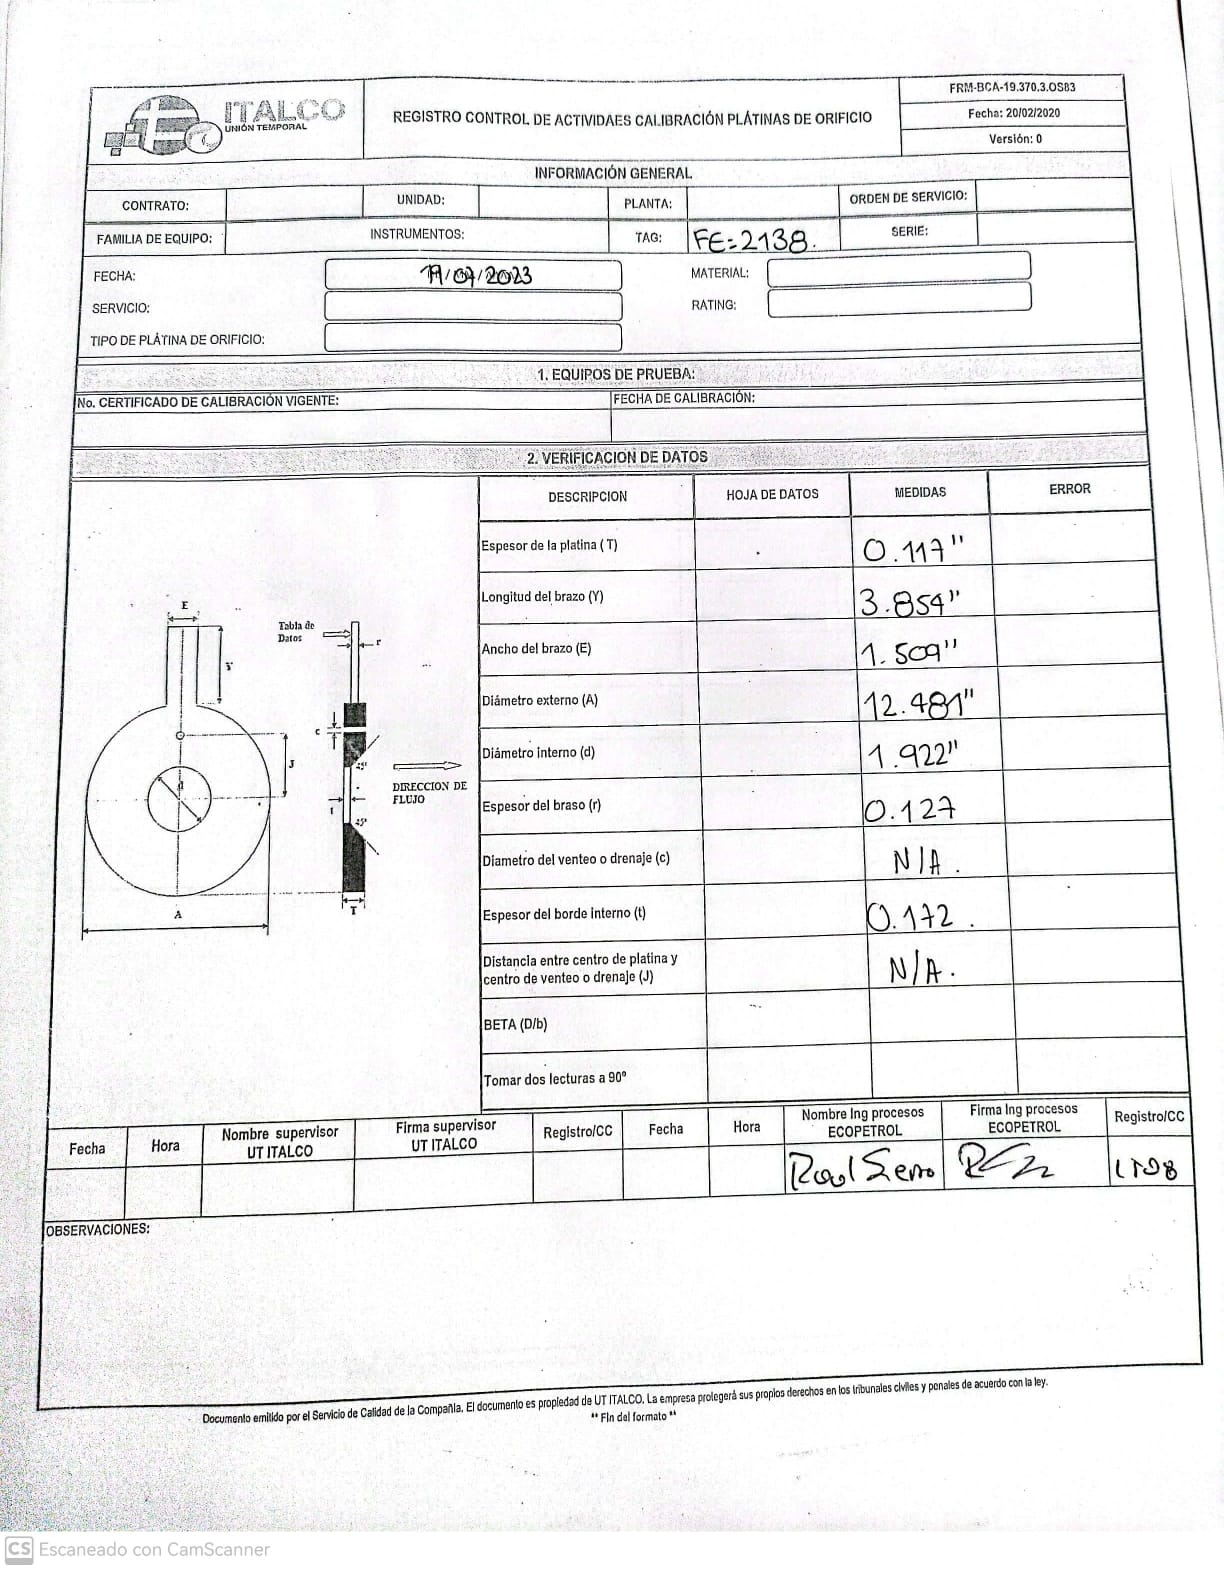 ITALCO
UNIÓN TEMPORAL
REGISTRO CONTROL DE ACTIVIDAES CALIBRACIÓN PLÁTINAS DE ORIFICIO
FRM-BCA-19.370.3.OS83
Fecha: 20/02/2020
Versión: 0
INFORMACIÓN GENERAL
CONTRATO: UNIDAD: PLANTA: ORDEN DE SERVICIO:
FAMILIA DE EQUIPO: INSTRUMENTOS: TAG: FE-2138. SERIE:
FECHA: 19/07/2023 MATERIAL:
SERVICIO: RATING:
TIPO DE PLÁTINA DE ORIFICIO:
1. EQUIPOS DE PRUEBA:
No. CERTIFICADO DE CALIBRACIÓN VIGENTE: FECHA DE CALIBRACIÓN:
2. VERIFICACION DE DATOS
DESCRIPCION HOJA DE DATOS MEDIDAS ERROR
Espesor de la platina ( T) 0.117"
Longitud del brazo (Y) 3.854"
Ancho del brazo (E) 1.509"
Diámetro externo (A) 12.481"
Diámetro interno (d) 1.922"
Espesor del braso (r) 0.127
Diametro del venteo o drenaje (c) N/A.
Espesor del borde interno (t) 0.172.
Distancia entre centro de platina y
centro de venteo o drenaje (J) N/A.
BETA (D/b)
Tomar dos lecturas a 90°
E
Tabla de
Datos
r
Y
c
J
45°
d
DIRECCION DE
FLUJO
t
45°
A
T
Fecha Hora Nombre supervisor
UT ITALCO Firma supervisor
UT ITALCO Registro/CC Fecha Hora Nombre Ing procesos
ECOPETROL Firma Ing procesos
ECOPETROL Registro/CC
Raul Sierra
OBSERVACIONES:
Documento emitido por el Servicio de Calidad de la Compañía. El documento es propiedad de UT ITALCO. La empresa protegerá sus propios derechos en los tribunales civiles y penales de acuerdo con la ley.
** Fin del formato **
CS Escaneado con CamScanner